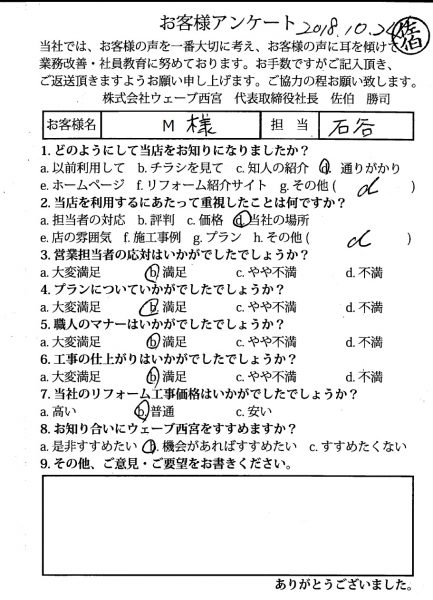 お客様アンケート 2018.10.24 佐伯
当社では、お客様の声を一番大切に考え、お客様の声に耳を傾けて
業務改善・社員教育に努めております。お手数ですがご記入頂き、
ご返送頂きますようお願い申し上げます。ご協力の程お願い致します。
株式会社ウェーブ西宮 代表取締役社長 佐伯 勝司
お客様名 M 様 担当 石谷
1. どのようにして当店をお知りになりましたか？
a. 以前利用して b. チラシを見て c. 知人の紹介 d. 通りがかり
e. ホームページ f. リフォーム紹介サイト g. その他 ( d )
2. 当店を利用するにあたって重視したことは何ですか？
a. 担当者の対応 b. 評判 c. 価格 d. 当社の場所
e. 店の雰囲気 f. 施工事例 g. プラン h. その他 ( d )
3. 営業担当者の応対はいかがでしたでしょうか？
a. 大変満足 b. 満足 c. やや不満 d. 不満
4. プランについていかがでしたでしょうか？
a. 大変満足 b. 満足 c. やや不満 d. 不満
5. 職人のマナーはいかがでしたでしょうか？
a. 大変満足 b. 満足 c. やや不満 d. 不満
6. 工事の仕上がりはいかがでしたでしょうか？
a. 大変満足 b. 満足 c. やや不満 d. 不満
7. 当社のリフォーム工事価格はいかがでしたでしょうか？
a. 高い b. 普通 c. 安い
8. お知り合いにウェーブ西宮をすすめますか？
a. 是非すすめたい b. 機会があればすすめたい c. すすめたくない
9. その他、ご意見・ご要望をお書きください。
ありがとうございました。